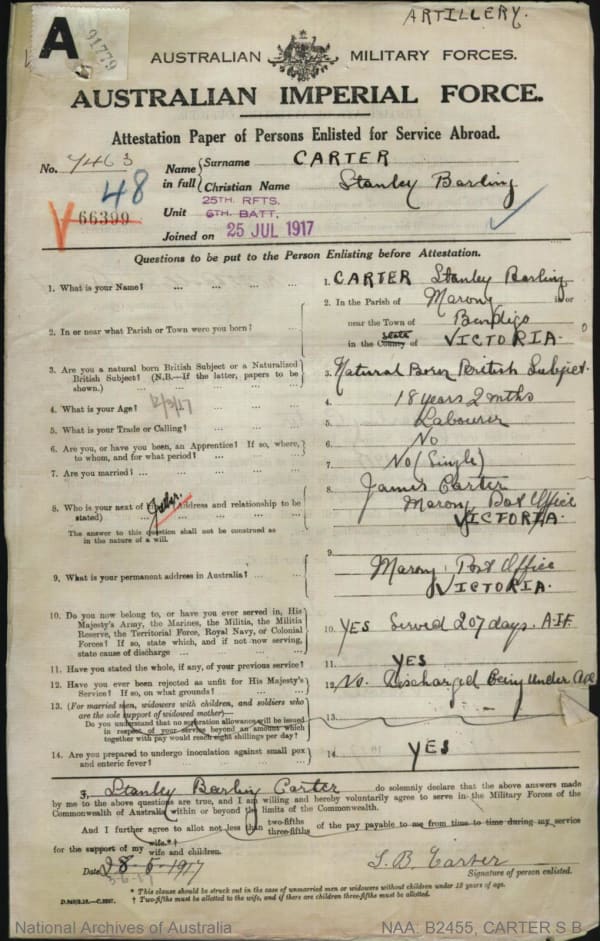 ARTILLERY.
A
91779
AUSTRALIAN MILITARY FORCES.
AUSTRALIAN IMPERIAL FORCE.
Attestation Paper of Persons Enlisted for Service Abroad.
No. 7463
Name in full
Surname CARTER
Christian Name Stanley Barling
48
66399
25TH. RFTS.
Unit 6TH. BATT.
Joined on 25 JUL 1917
Questions to be put to the Person Enlisting before Attestation.
1. What is your Name? ... ... ... ...
1. CARTER Stanley Barling
2. In or near what Parish or Town were you born? ...
2. In the Parish of Marong in or
near the Town of Bendigo
in the County State of VICTORIA.
3. Are you a natural born British Subject or a Naturalized British Subject? (N.B.—If the latter, papers to be shown.) ... ... ... ...
3. Natural Born British Subject.
4. What is your Age? ... ... ... ...
12/3/17
4. 18 years 2 mths
5. What is your Trade or Calling? ... ... ...
5. Labourer
6. Are you, or have you been, an Apprentice? If so, where, to whom, and for what period? ... ... ...
6. No
7. Are you married? ... ... ... ...
7. No (Single)
8. Who is your next of kin? (Address and relationship to be stated) ... ... ... ...
Father.
The answer to this question shall not be construed as in the nature of a will.
8. James Carter
Marong Post Office
VICTORIA.
9. What is your permanent address in Australia? ... ...
9. Marong Post Office
VICTORIA.
10. Do you now belong to, or have you ever served in, His Majesty's Army, the Marines, the Militia, the Militia Reserve, the Territorial Force, Royal Navy, or Colonial Forces? If so, state which, and if not now serving, state cause of discharge ... ... ...
10. YES Served 207 days. A.I.F.
11. Have you stated the whole, if any, of your previous service?
11. YES
12. Have you ever been rejected as unfit for His Majesty's Service? If so, on what grounds? ... ... ...
12. No. Discharged Being Under Age
13. (For married men, widowers with children, and soldiers who are the sole support of widowed mother)—
Do you understand that no separation allowance will be issued in respect of your service beyond an amount which together with pay would reach eight shillings per day?
13.
14. Are you prepared to undergo inoculation against small pox and enteric fever? ... ... ... ...
14. YES
I, Stanley Barling Carter do solemnly declare that the above answers made by me to the above questions are true, and I am willing and hereby voluntarily agree to serve in the Military Forces of the Commonwealth of Australia within or beyond the limits of the Commonwealth.
And I further agree to allot not less than two-fifths three-fifths of the pay payable to me from time to time during my service
for the support of my wife.*† wife and children.
Date 28-5-1917
S. B. Carter
Signature of person enlisted.
* This clause should be struck out in the case of unmarried men or widowers without children under 18 years of age.
† Two-fifths must be allotted to the wife, and if there are children three-fifths must be allotted.
National Archives of Australia
NAA: B2455, CARTER S B